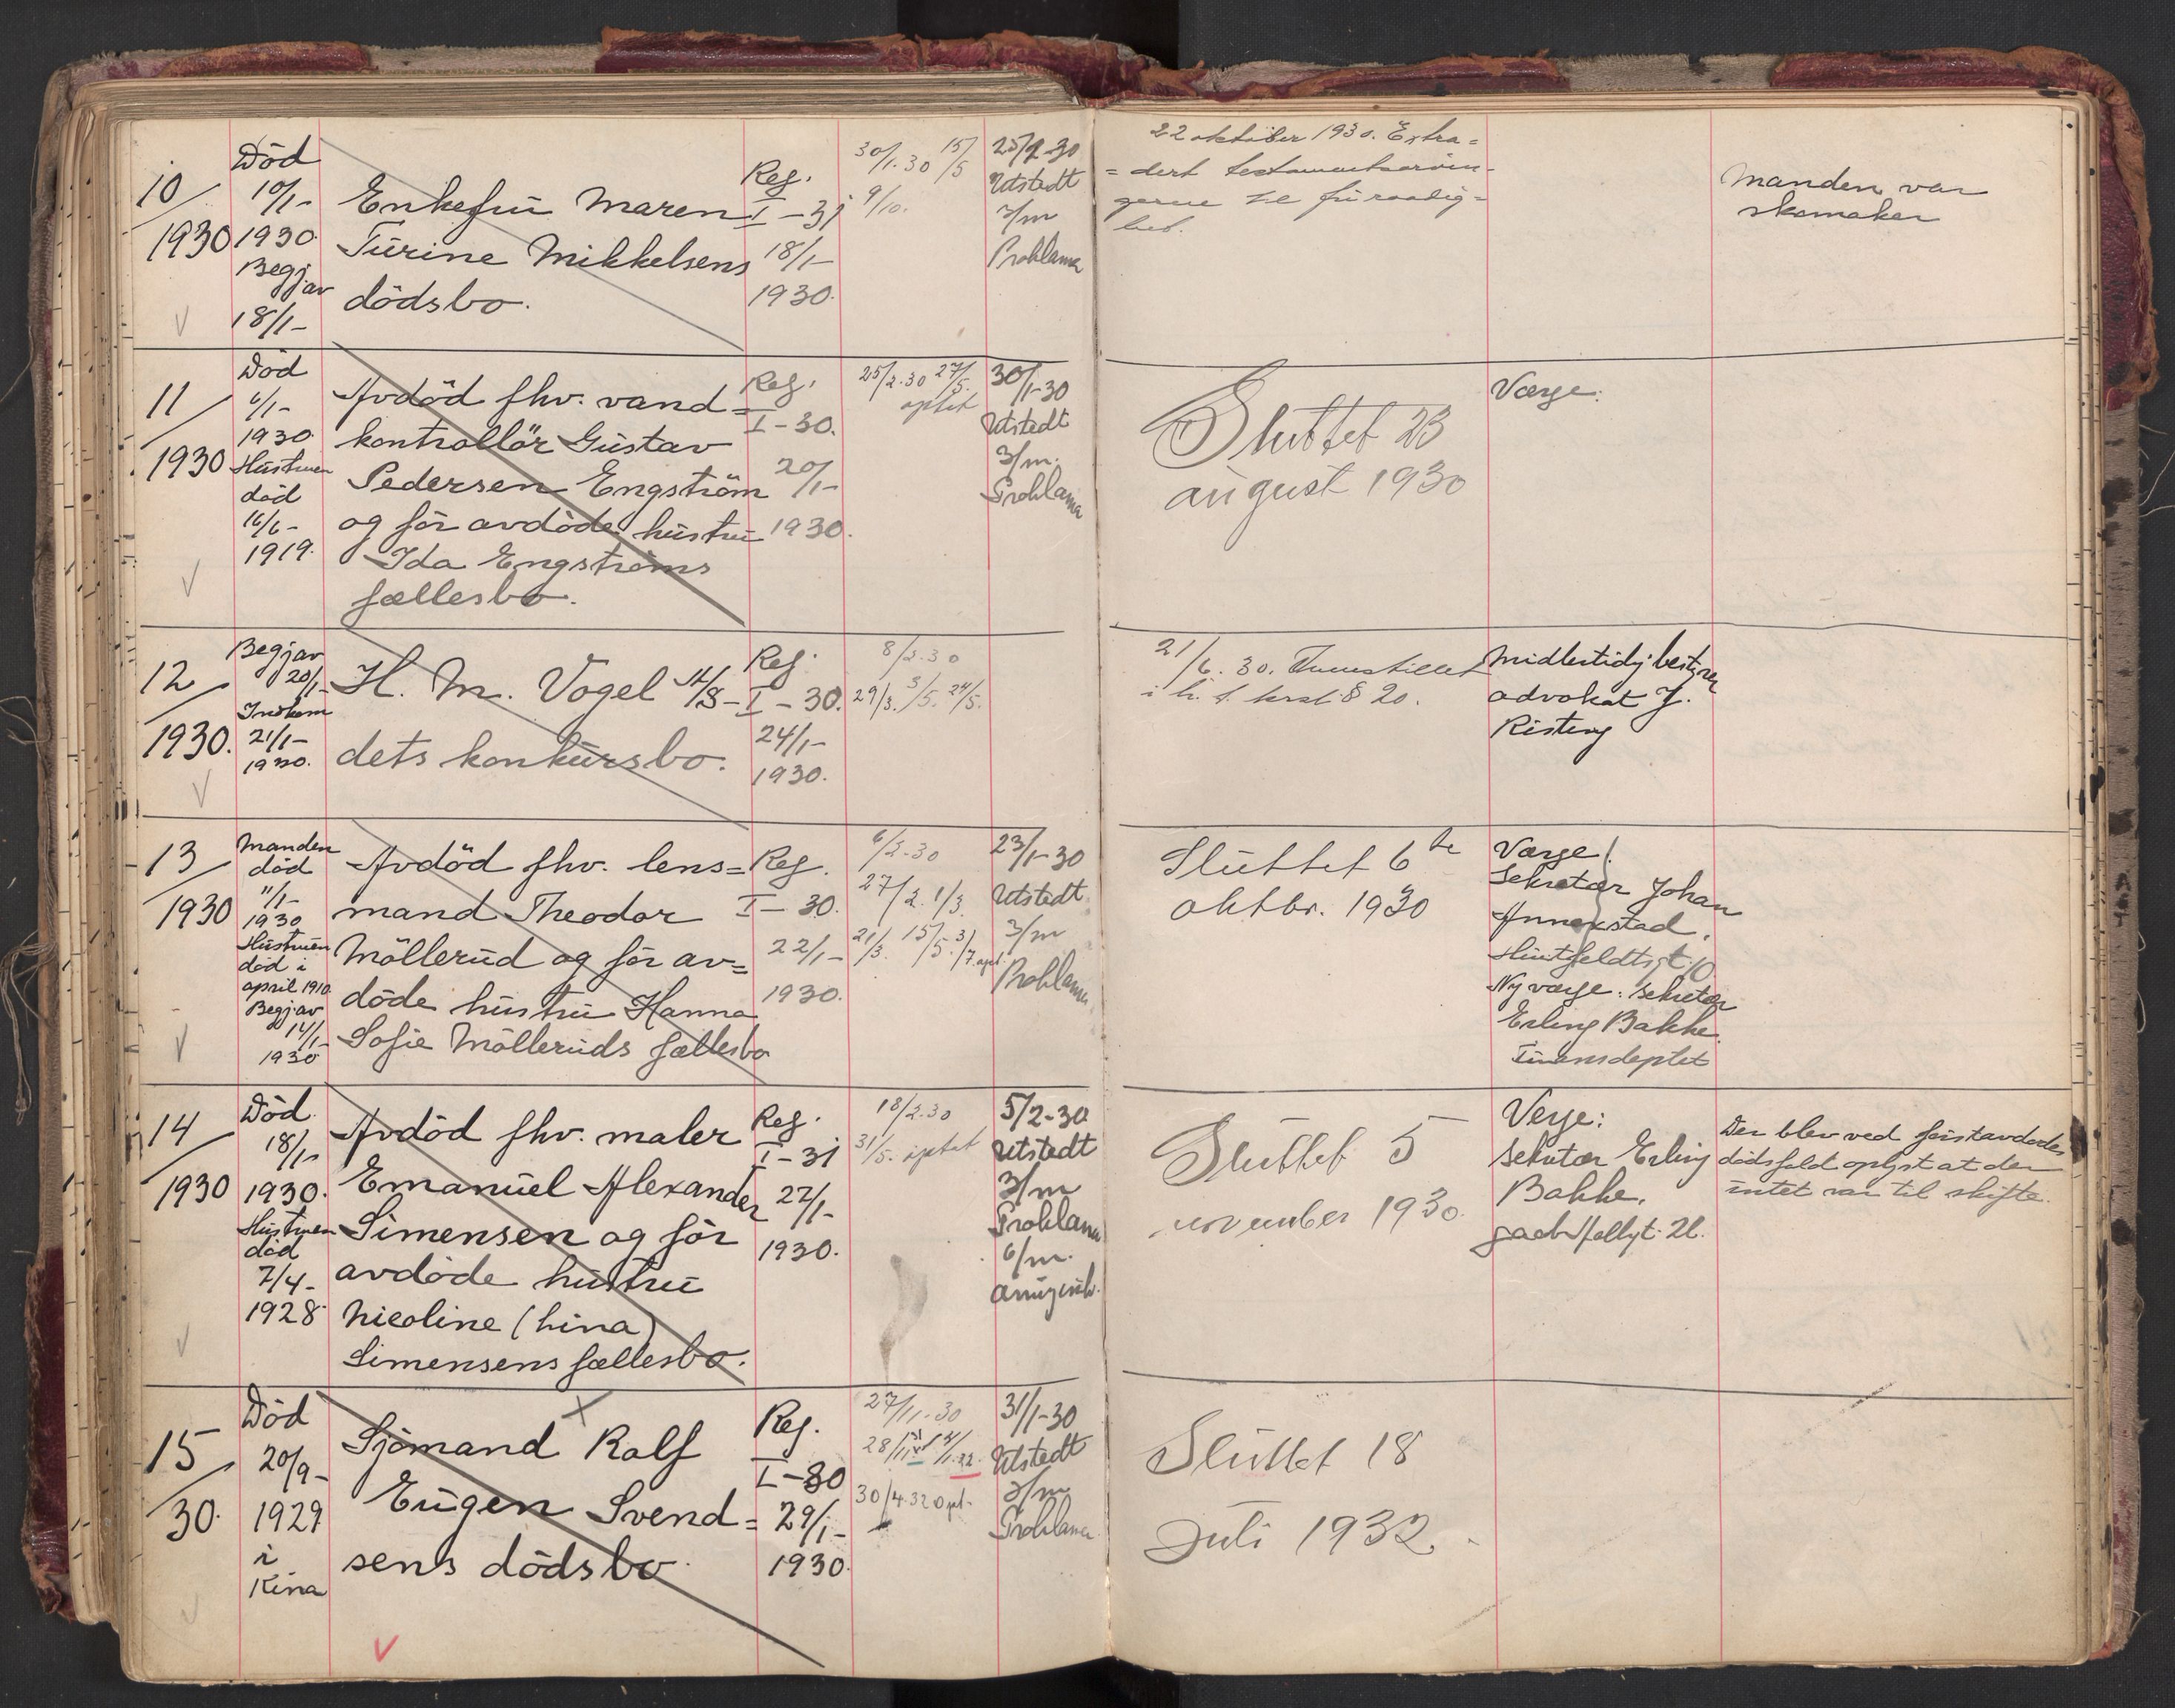 10
1930
Död
10/1-
1930.
Begj. av
18/1-
Enkefru Maren
Turine Mikkelsens
dödsbo.
Reg.
I-31
18/1-
1930.
30/1.30 15/5
9/10.
25/2-30
Utstedt
3/m
Proklama
22 oktober 1930. Extra=
=dert testamentsarvin-
gerne til fri raadig=
het.
Manden var
skomaker
11
1930
Död
6/1-
1930.
Hustruen
död
16/6-
1919.
Avdöd fhv. vand=
kontrollör Gustav
Pedersen Engström
og för avdöde hustru
Ida Engströms
fællesbo.
Reg.
I-30.
20/1-
1930.
25/2.30 27/5.
optat
30/1-30
Utstedt
3/m.
Proklama
Sluttet 23
august 1930
Værge:
12
1930.
Begj. av
20/1-
Indkom
21/1-
1930.
H. M. Vogel A/S-
dets konkursbo.
Reg.
I-30.
24/1-
1930.
8/2.30
29/3. 3/5. 24/5.
21/6.30. Innstillet
i h. t. § 20.
Midlertidig bestyrer
advokat J.
Risting
13
1930
Manden
död
11/1-
1930
Hustruen
död i
april 1910.
Begj. av
14/1-
1930
Avdöd fhv. lens=
mand Theodor
Möllerud og för av=
döde hustru Hanna
Sofie Mölleruds fællesbo
Reg.
I-30.
22/1-
1930.
6/2-30
27/2. 1/3.
21/3. 15/5. 3/7. opt.
23/1-30
Utstedt
3/m
Proklama
Sluttet 6te
oktbr. 1930
Værge:
Sekretær Johan
Annexstad,
Huitfeldtsgt. 10
Ny værge: sekretær
Erling Bakke.
Finansdeptet
14
1930
Död
18/1-
1930.
Hustruen
död
7/4-
1928.
Avdöd fhv. maler
Emanuel Alexander
Simensen og för
avdöde hustru
Nicoline (Lina)
Simensens fællesbo.
Reg.
I-31
22/1-
1930.
18/2.30
31/5. optat
5/2-30
Utstedt
3/m
Proklama
6/m.
Sluttet 5
november 1930.
Verge:
Sekretær Erling
Bakke,
Der blev ved förstavdödes
dödsfald oplyst at der
intet var til skifte.
15
30.
Död
20/9-
1929
i
Kina
Sjömand Rolf
Eugen Svend=
sens dödsbo.
Reg.
I-30
29/1-
1930.
27/11-30
30/4.32 opt.
31/1-30
Utstedt
3/m
Proklama
Sluttet 18
Juli 1932.